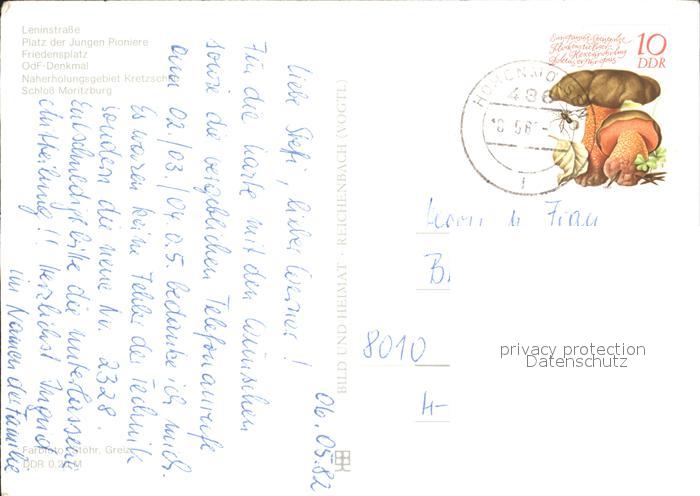 Leninstraße
Platz der Jungen Pioniere
Friedensplatz
OdF-Denkmal
Naherholungsgebiet Kretzsch
Schloß Moritzburg
06.05.82
Liebe Stefi, lieber Werner!
Für die Karte mit den Wünschen
sowie die vergeblichen Telefonanrufe
am 02./03./04.05. bedanke ich mich.
Es waren keine Fehler der Technik
sondern die neue Nr. 2328.
Entschuldigt bitte die unterlassene
Mitteilung!! Herzlichst Ingrid
im Namen der Familie
BILD UND HEIMAT · REICHENBACH (VOGTL)
10
DDR
HOHENMÖ
Herrn u Frau
B
8010
H-
privacy protection
Datenschutz
Farbfoto: Stöhr, Greiz
DDR 0,20 M